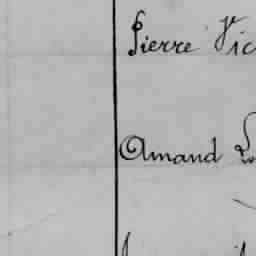 Pierre Vic
Amand